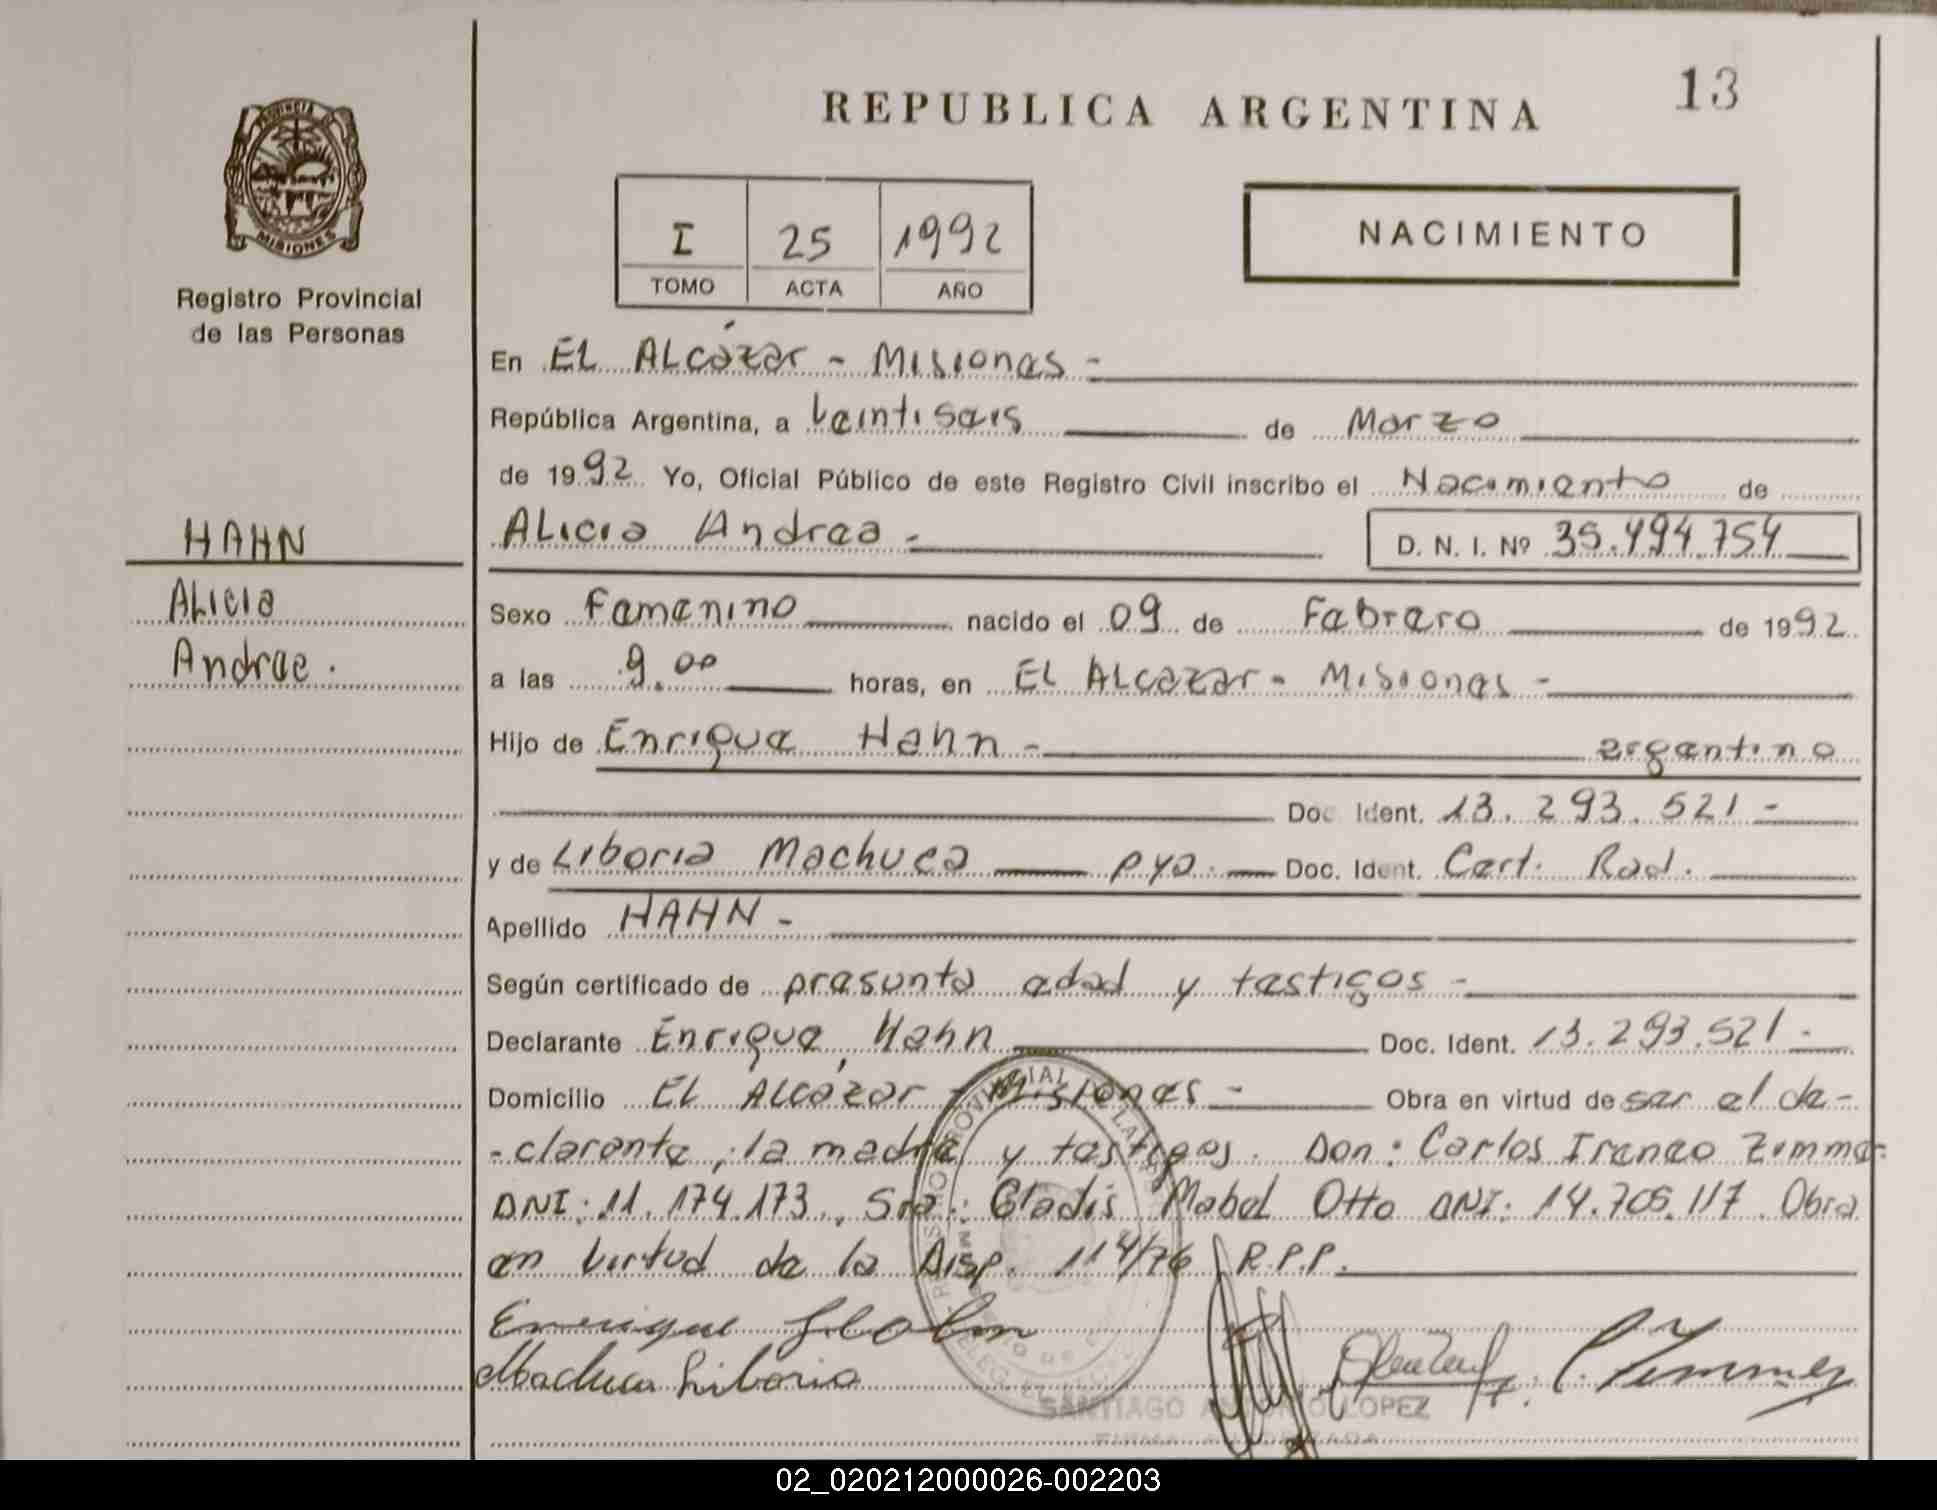 REPUBLICA ARGENTINA
13
PROVINCIA
MISIONES
Registro Provincial
de las Personas
I 25 1992
TOMO ACTA AÑO
NACIMIENTO
En EL ALCázar - Misiones -
República Argentina, a Veintiseis de Marzo
de 1992 Yo, Oficial Público de este Registro Civil inscribo el Nacimiento de
HAHN
Alicia Andrea - D. N. I. Nº 35.494.754
Alicia
Andrea.
Sexo Femenino nacido el 09 de Febrero de 1992
a las 9.00 horas, en EL ALCazar - Misiones -
Hijo de Enrique Hahn - argentino
Doc. Ident. 13.293.521 -
y de Liboria Machuca pya. Doc. Ident. Cert. Rad.
Apellido HAHN -
Según certificado de presunta edad y testigos -
Declarante Enrique Hahn Doc. Ident. 13.293.521 -
Domicilio EL ALCázar - Misiones - Obra en virtud de ser el de-
-clarante, la madre y testigos. Don: Carlos Ireneo Zimmer
DNI: 11.174.173, Sra: Gladis Mabel Otto DNI: 14.705.117 Obra
en virtud de la Disp. 114/76 R.P.P.
Enrique Hahn
Machuca Liboria
SANTIAGO ANTONIO LOPEZ
02_020212000026-002203